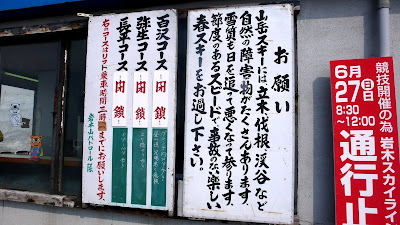 お願い
山岳スキーには立木、伐根、渓谷など
自然の障害物がたくさんあります。
雪質も日を追って悪くなって参ります。
節度のあるスピードで事故のない楽しい
春スキーをお過し下さい。
百沢コース
閉鎖
弥生コース
閉鎖
長平コース
閉鎖
右のコースはリフト乗車時間二時
までにお願いします。
岩木山パトロール隊
競技開催の為
岩木スカイライ
6月
27日
8:30
～12:00
通行止